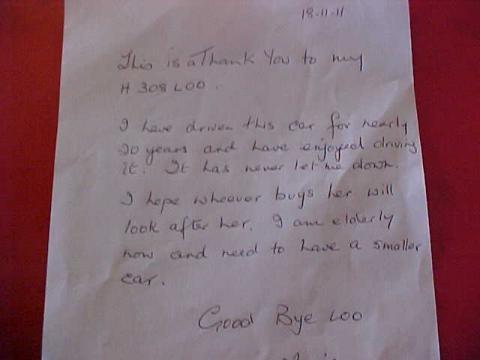 18-11-11
This is a Thank You to my
H 308 LOO.
I have driven this car for nearly
20 years and have enjoyed driving
it. It has never let me down.
I hope whoever buys her will
look after her. I am elderly
now and need to have a smaller
car.
Good Bye LOO